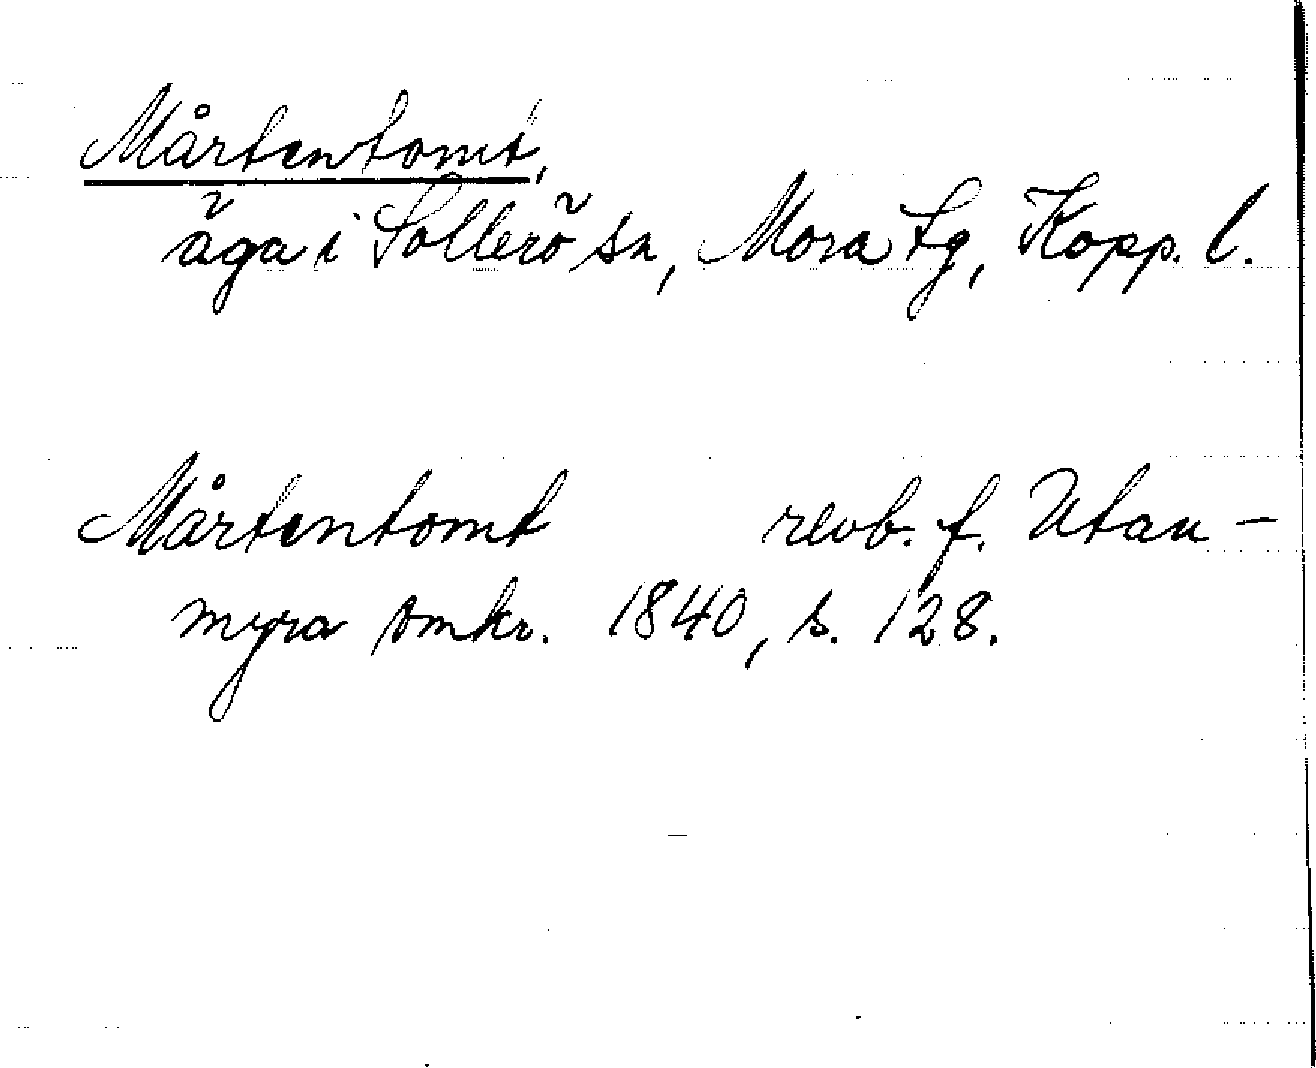 Mårtentomt,
äga i Sollerö sn, Mora tg, Kopp. l.
Mårtentomt revb. f. Utan-
myra omkr. 1840, s. 128.